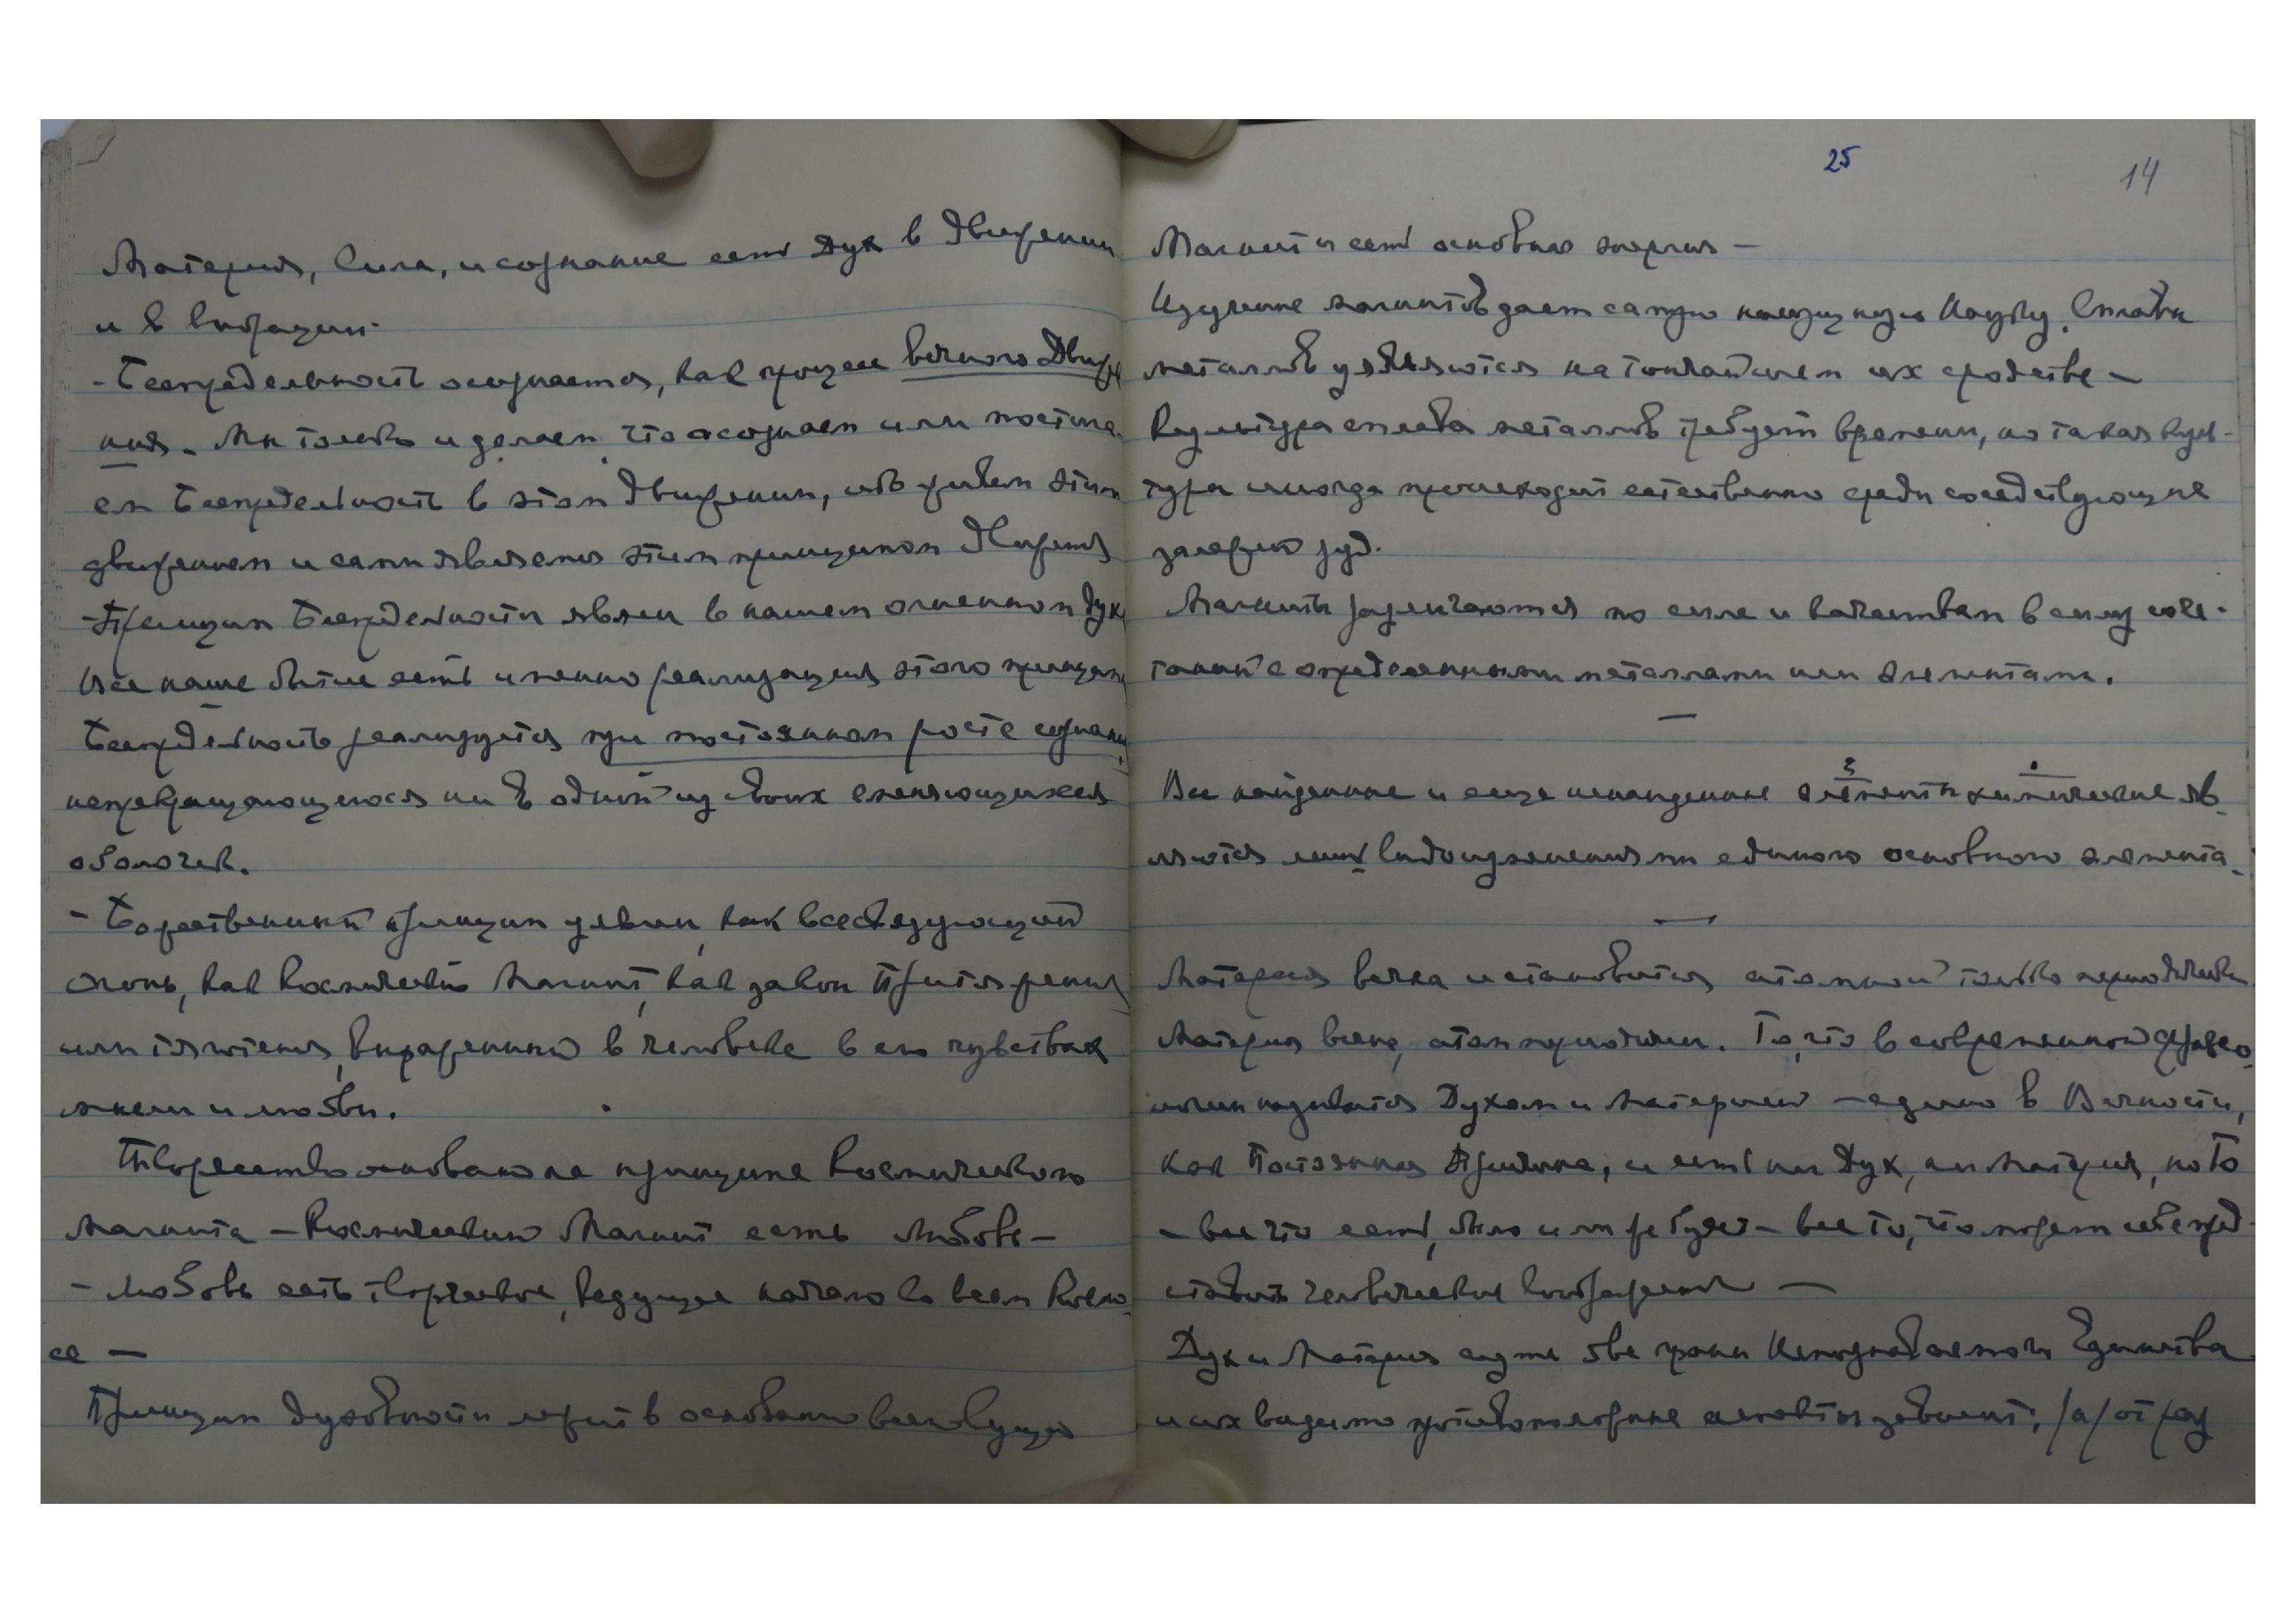 Материя, Сила, и сознание есть Дух в Движении
и в вибрации.
- Беспредельность осознается, как процесс вечного Движе
ния. Мы только и делаем, что осознаем или постига
ем Беспредельность в этом Движении, ибо живем этим
движением и сами являемся этим принципом Движения
- Принцип Беспредельности явлен в нашем огненном Духе
Все наше бытие есть именно реализация этого принципа
Беспредельность реализуется при постоянном росте сознания,
непрекращающегося ни в одной из своих сменяющихся
оболочек.
- Божественный принцип явлен, как всесвязующий
огонь, как Космический Магнит, как закон Притяжения
или тяготения, выраженный в человеке в его чувствах
мысли и любви.
Творчество основано на принципе Космического
магнита - Космический Магнит есть Любовь -
- Любовь есть творческое, ведущее начало во всем Космо
се -
Принцип духовности лежит в основании всего сущего
25
14
Магнит и есть основная энергия -
Изучение магнитов дает самую науку. Сплавы
металлов на тончайшем их сродстве -
Культура сплава металлов требует времени, но такая куль-
тура иногда происходит естественно среди соседствующие
залежей руд.
Магниты различаются по силе и качествам в силу соче-
таний с определенными металлами или элементами.
Все найденные и еще ненайденные элементы химические яв-
ляются лишь видоизменениями единого основного элемента.
Материя вечна и становится атомной только периодически
Материя вечна, атом периодичен. То, что в современной фразео
логии называется Духом и материей - едино в Вечности,
как Постоянная Причина, и есть ни Дух, ни Материя, но То
- все что есть, было или же будет - все то, что может себе пред-
ставить человеческое воображение -
Дух и Материя суть две грани Непознаваемого Единства
и их видимо противоположные аспекты зависят: /а/ от раз